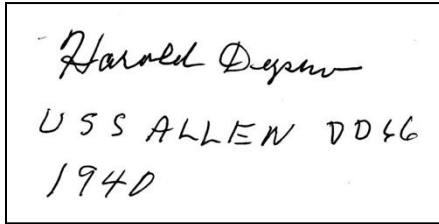 Harold
USS ALLEN DD66
1940